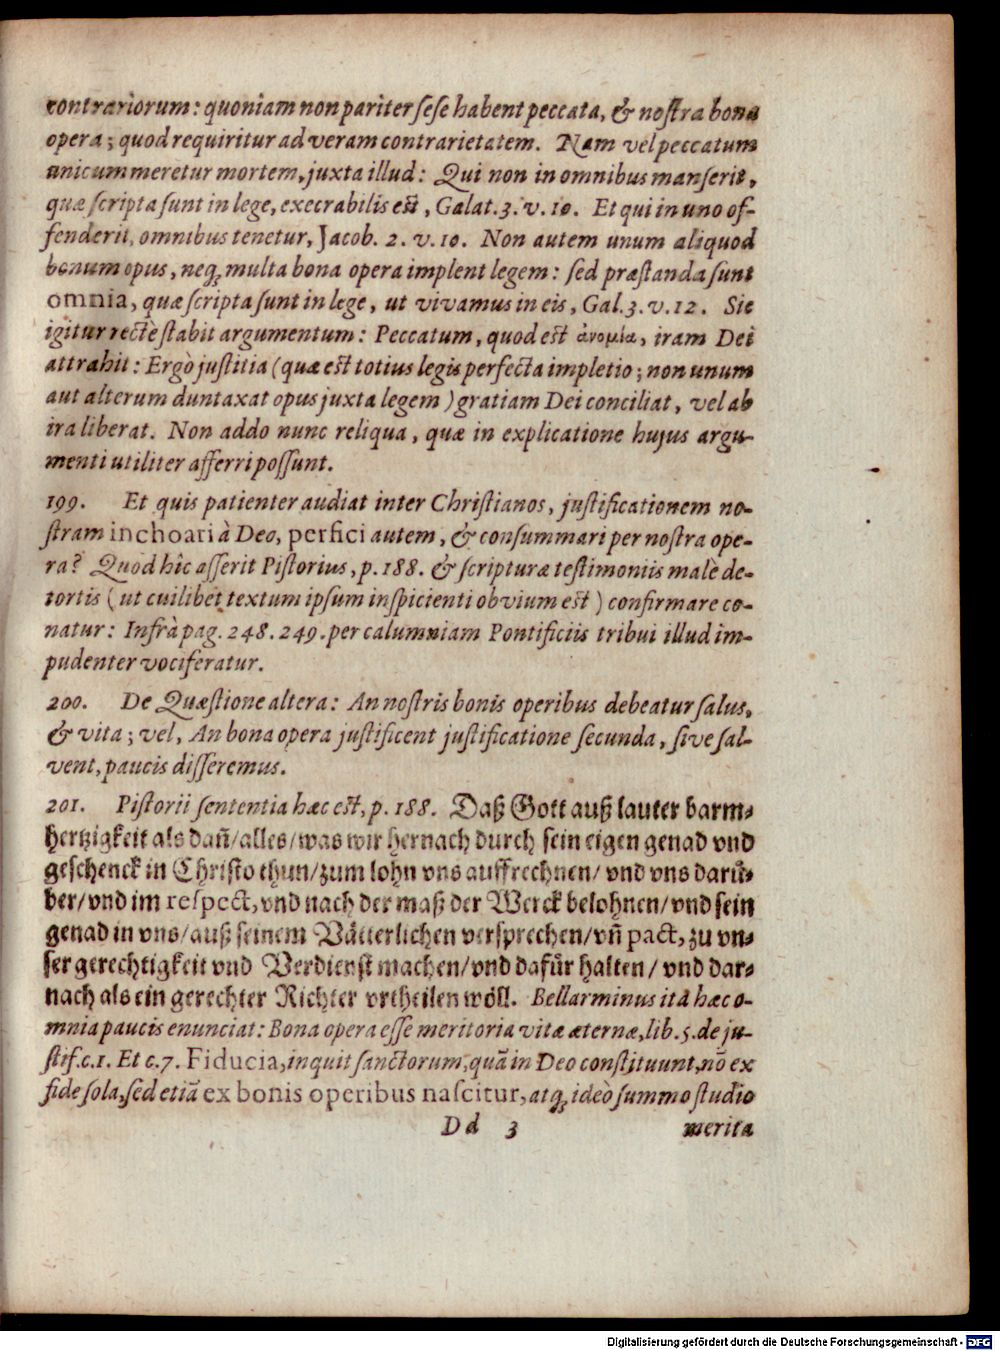 contrariorum: quoniam non pariter sese habent peccata, & nostra bona
opera; quod requiritur ad veram contrarietatem. Nam vel peccatum
unicum meretur mortem, juxta illud: Qui non in omnibus manserit,
quæ scripta sunt in lege, execrabilis est, Galat. 3. v. 10. Et qui in uno of-
fenderit, omnibus tenetur, Jacob. 2. v. 10. Non autem unum aliquod
bonum opus, neq; multa bona opera implent legem: sed præstanda sunt
omnia, quæ scripta sunt in lege, ut vivamus in eis, Gal. 3. v. 12. Sic
igitur rectè stabit argumentum: Peccatum, quod est ἀνομία, iram Dei
attrahit: Ergò justitia (quæ est totius legis perfecta impletio; non unum
aut alterum duntaxat opus juxta legem) gratiam Dei conciliat, vel ab
ira liberat. Non addo nunc reliqua, quæ in explicatione hujus argu-
menti utiliter afferri possunt.
199. Et quis patienter audiat inter Christianos, justificationem no-
stram inchoari à Deo, perfici autem, & consummari per nostra ope-
ra? Quod hîc asserit Pistorius, p. 188. & scripturæ testimoniis malè de-
tortis (ut cuilibet textum ipsum inspicienti obvium est) confirmare co-
natur: Infrà pag. 248. 249. per calumniam Pontificiis tribui illud im-
pudenter vociferatur.
200. De Quæstione altera: An nostris bonis operibus debeatur salus,
& vita; vel, An bona opera justificent justificatione secunda, sive sal-
vent, paucis disseremus.
201. Pistorii sententia hæc est, p. 188. Daß Gott auß lauter barm-
hertzigkeit als dañ/alles/was wir hernach durch sein eigen genad vnd
geschenck in Christo thun/zum lohn vns auffrechnen/ vnd vns darü-
ber/vnd im respect, vnd nach der maß der Werck belohnen/vnd sein
genad in vns/auß seinem Vätterlichen versprechen/vñ pact, zu vn-
ser gerechtigkeit vnd Verdienst machen/vnd dafür halten/ vnd dar-
nach als ein gerechter Richter vrtheilen wöll. Bellarminus ita hæc o-
mnia paucis enunciat: Bona opera esse meritoria vitæ æternæ, lib. 5. de ju-
stif. c. 1. Et c. 7. Fiducia, inquit sanctorum, quā in Deo constituunt, nō ex
fide sola, sed etiā ex bonis operibus nascitur, atq; ideò summo studio
Dd 3 merita
Digitalisierung gefördert durch die Deutsche Forschungsgemeinschaft - DFG